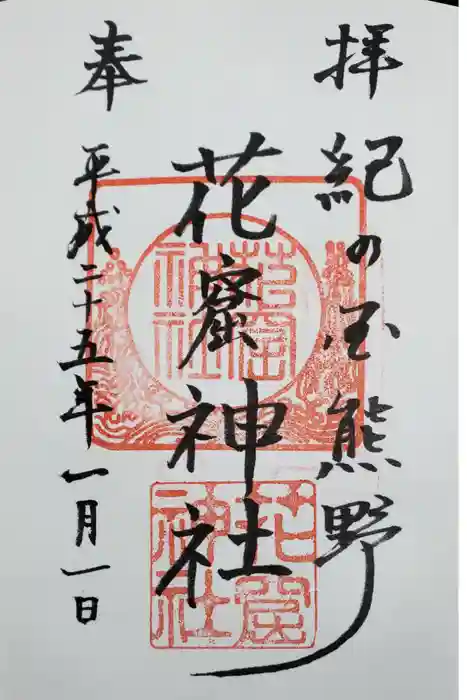 奉拝
紀の国熊野
花窟神社
平成二十五年一月一日
花窟神社
花窟神社